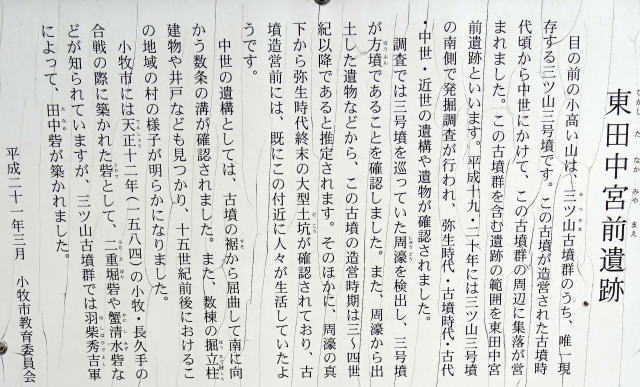 東田中宮前遺跡
ひがし た なか みや まえ
目の前の小高い山は、三ツ山古墳群のうち、唯一現
存する三ツ山三号墳です。この古墳が造営された古墳時
代頃から中世にかけて、この古墳群の周辺に集落が営
まれました。この古墳群を含む遺跡の範囲を東田中宮
前遺跡といいます。平成十九・二十年には三ツ山三号墳
の南側で発掘調査が行われ、弥生時代・古墳時代・古代
・中世・近世の遺構や遺物が確認されました。
調査では三号墳を巡っていた周濠を検出し、三号墳
が方墳であることを確認しました。また、周濠から出
土した遺物などから、この古墳の造営時期は三〜四世
紀以降であると推定されます。そのほかに、周濠の真
下から弥生時代終末の大型土坑が確認されており、古
墳造営前には、既にこの付近に人々が生活していたよ
うです。
中世の遺構としては、古墳の裾から屈曲して南に向
かう数条の溝が確認されました。また、数棟の掘立柱
建物や井戸なども見つかり、十五世紀前後におけるこ
の地域の村の様子が明らかになりました。
小牧市には天正十二年(一五八四)の小牧・長久手の
合戦の際に築かれた砦として、二重堀砦や蟹清水砦な
どが知られていますが、三ツ山古墳群では羽柴秀吉軍
によって、田中砦が築かれました。
平成二十一年三月 小牧市教育委員会